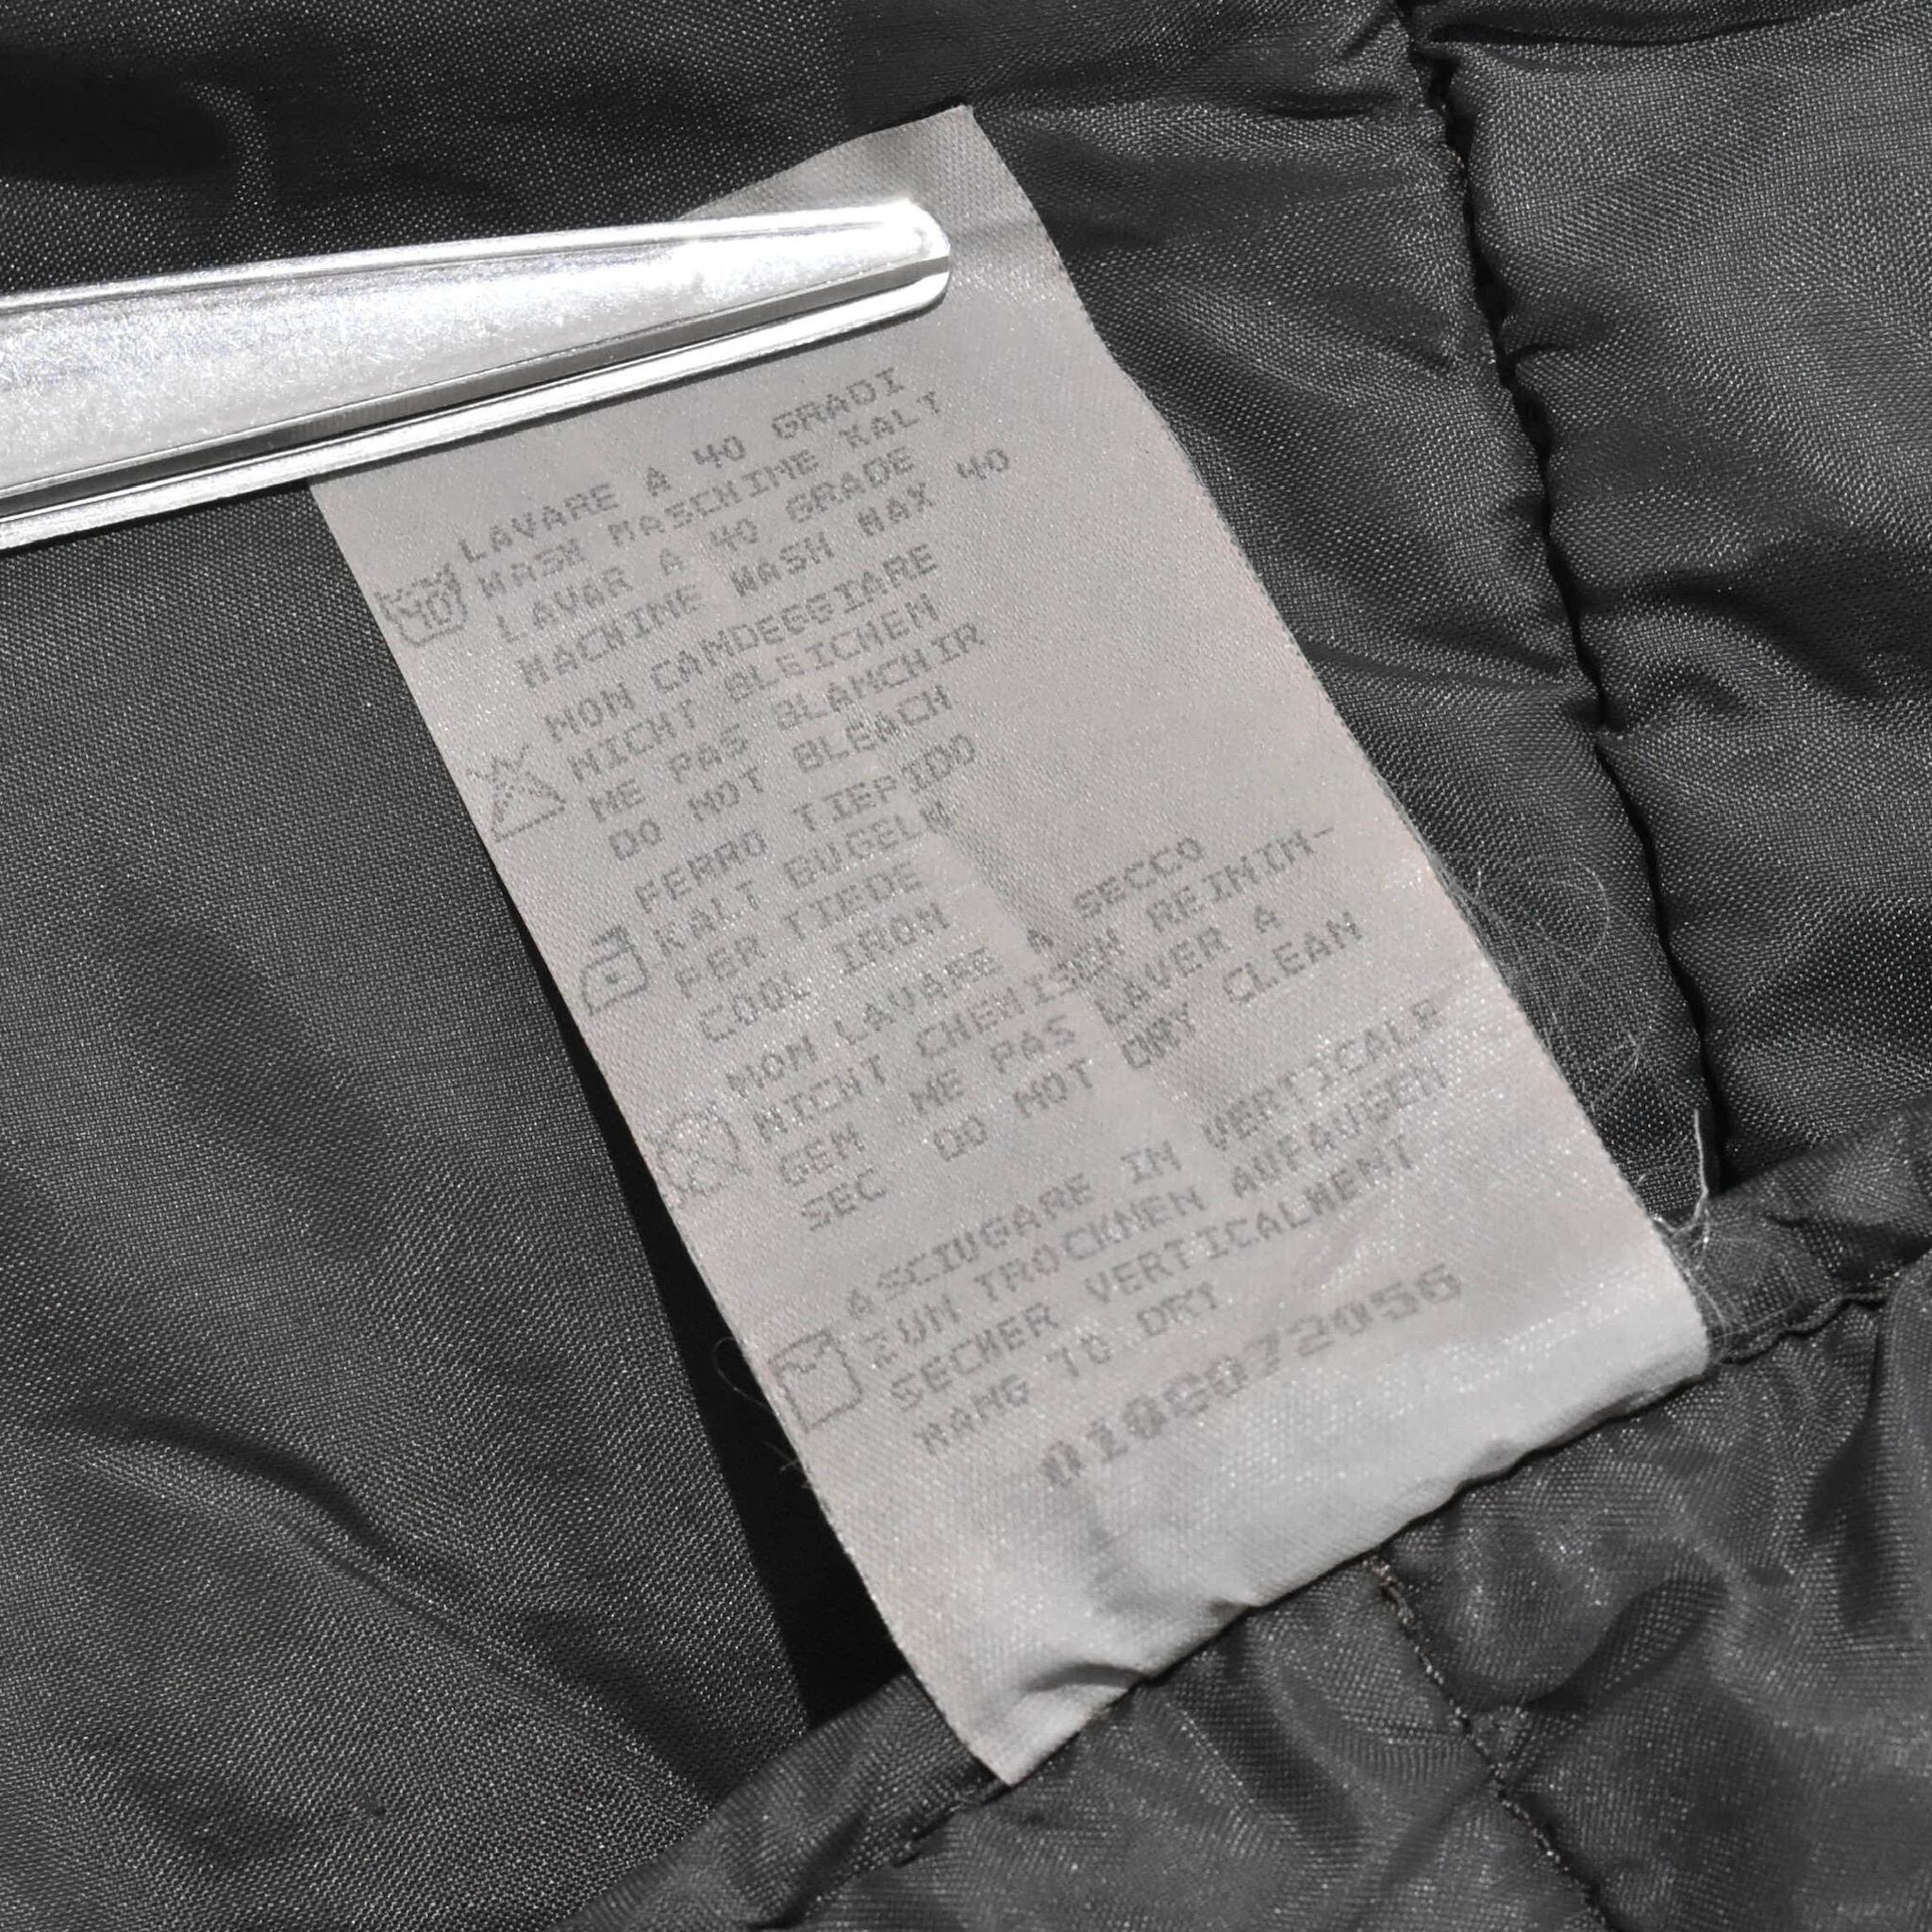 LAVARE A 40 GRADI
WASH MASCHINE KALT
LAVAR A 40 GRADE
MACHINE WASH MAX 40
40
NON CANDEGGIARE
NICHT BLEICHEN
NE PAS BLANCHIR
DO NOT BLEACH
FERRO TIEPIDO
KALT BUGELN
FER TIEDE
COOL IRON
NON LAVARE A SECCO
NICHT CHEMISEN REININ-
GEN NE PAS LAVER A
SEC DO NOT DRY CLEAN
ASCIUGARE IN VERTICALE
ZUM TROCKNEN AUFAUGEN
SECHER VERTICALMENT
HANG TO DRY